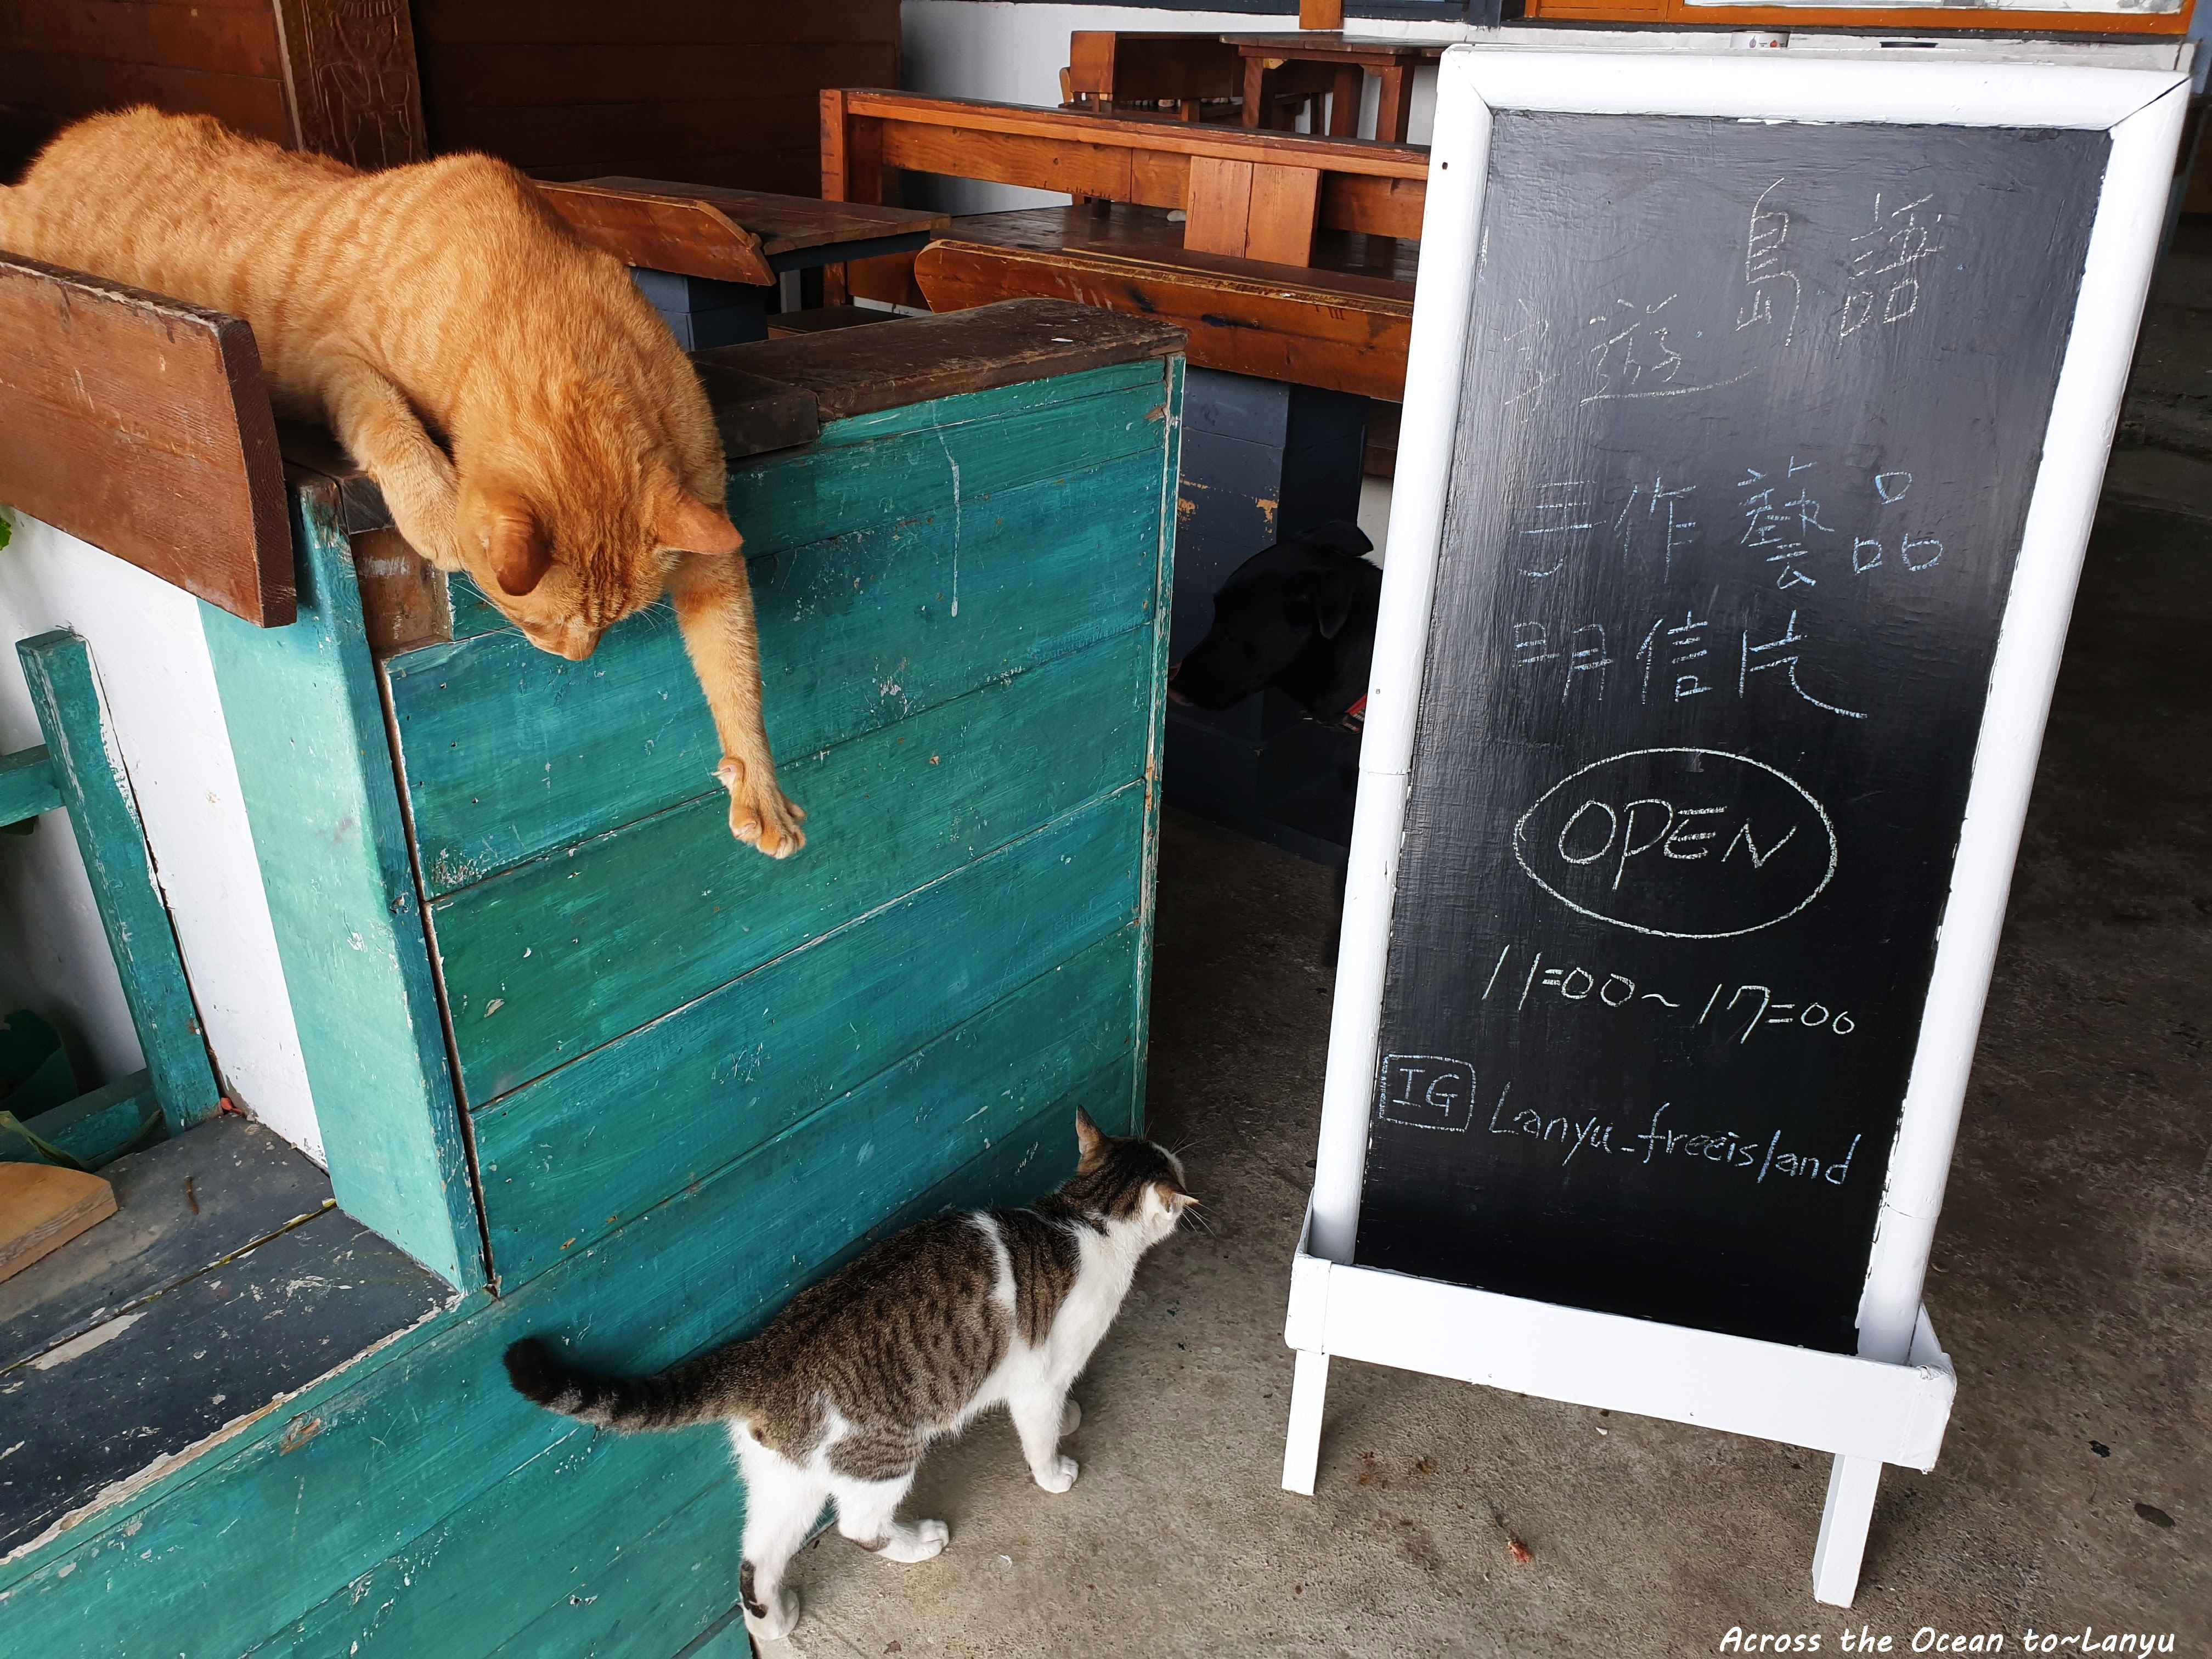 島語
遊
手作藝品
明信片
OPEN
11:00~17:00
IG Lanyu_freeisland
Across the Ocean to~Lanyu